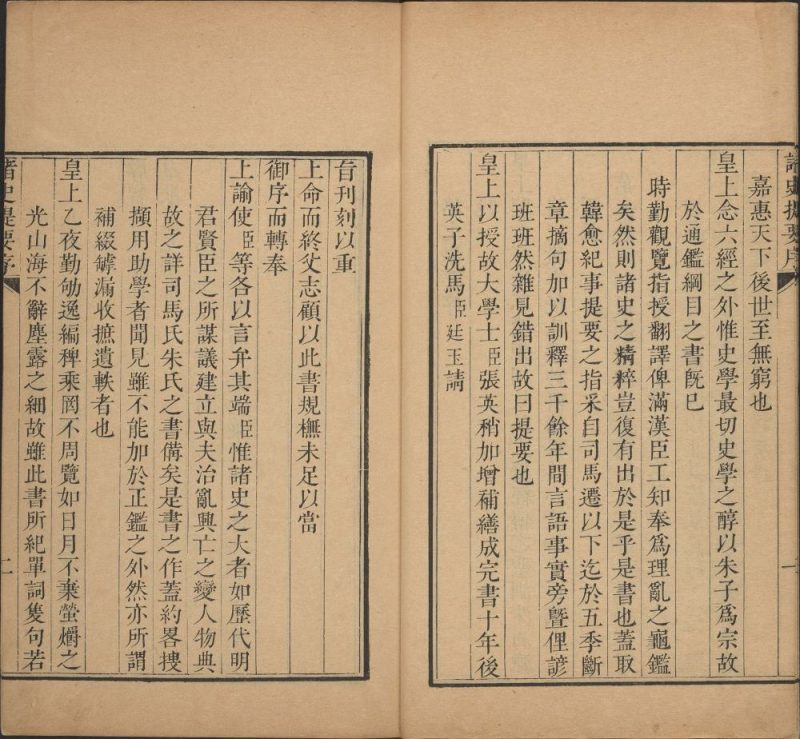 諸史提要序
嘉惠天下後世至無窮也
皇上念六經之外惟史學最切史學之醇以朱子爲宗故
於通鑑綱目之書旣已
時勤觀覽指授翻譯俾滿漢臣工知奉爲理亂之龜鑑
矣然則諸史之精粹豈復有出於是乎是書也蓋取
韓愈紀事提要之指采自司馬遷以下迄於五季斷
章摘句加以訓釋三千餘年間言語事實旁曁俚諺
班班然雜見錯出故曰提要也
皇上以授故大學士臣張英稍加增補繕成完書十年後
英子洗馬臣廷玉請
一
旨刊刻以重
上命而終父志顧以此書規橅未足以當
御序而轉奉
上諭使臣等各以言弁其端臣惟諸史之大者如歷代明
君賢臣之所謀議建立與夫治亂興亡之變人物典
故之詳司馬氏朱氏之書備矣是書之作蓋約畧摟
擷用助學者聞見雖不能加於正鑑之外然亦所謂
補綴罅漏收摭遺軼者也
皇上乙夜勤劬逸編稗乘罔不周覽如日月不棄螢爝之
光山海不辭塵露之細故雖此書所紀單詞隻句若
諸史提要序
二